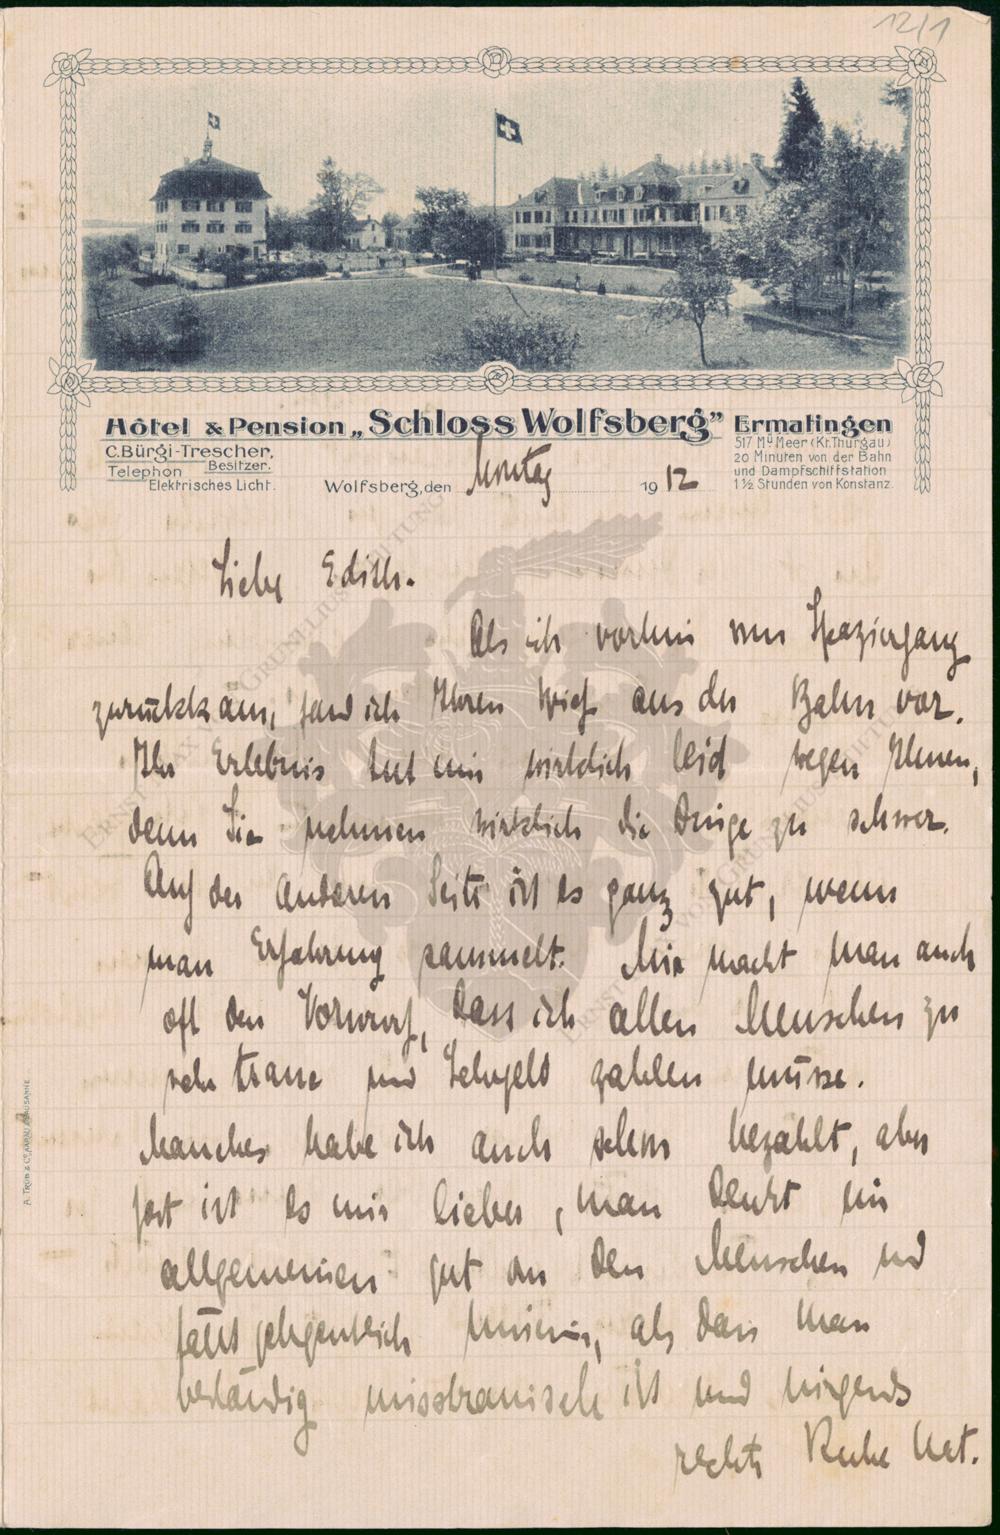 12/1
Hôtel & Pension „Schloss Wolfsberg” Ermatingen
C. Bürgi-Trescher,
Besitzer.
Telephon
Elektrisches Licht.
517 M ü Meer (Kt. Thurgau)
20 Minuten von der Bahn
und Dampfschiffstation
1 ½ Stunden von Konstanz.
Wolfsberg, den Montag 1912
Liebe Edith.
Als ich vorhin vom Spaziergang
zurückkam, fand ich Ihren Brief aus der Bahn vor.
Ihr Erlebnis tut mir wirklich leid wegen Ihnen,
denn Sie nehmen wirklich die Dinge zu schwer.
Auf der anderen Seite ist es ganz gut, wenn
man Erfahrung sammelt. Mir macht man auch
oft den Vorwurf, dass ich allen Menschen zu
sehr traue und Lehrgeld zahlen müsse.
Manches habe ich auch schon bezahlt, aber
fast ist es mir lieber, man denkt im
allgemeinen gut von den Menschen und
fällt gelegentlich hinein, als dass man
beständig misstrauisch ist und nirgends
rechte Ruhe hat.
A. Trüb & Cie, Aarau & Lausanne
Ernst Max von Grunelius-Stiftung
Ernst Max von Grunelius-Stiftung